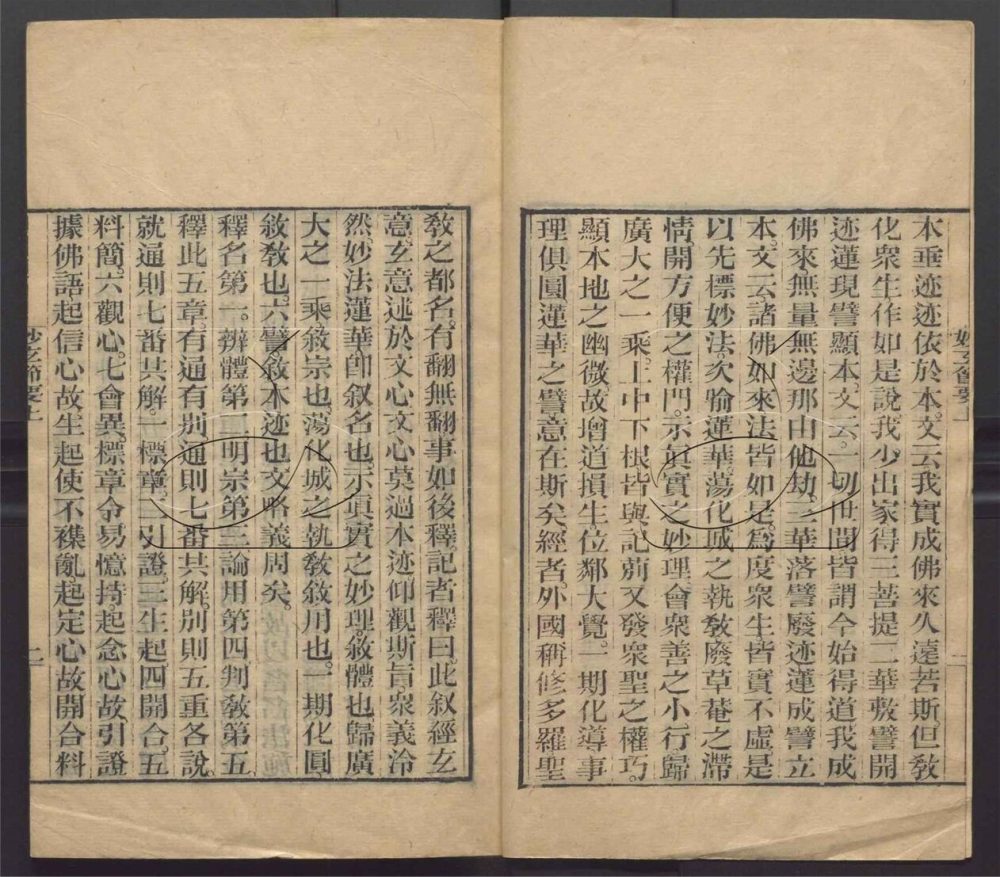 本垂迹迹依於本。文云我實成佛來久遠若斯。但敎
化衆生。作如是說我少出家得三菩提。二華敷譬開
迹蓮現譬顯本。文云。一切世閒皆謂今始得道。我成
佛來無量無邊那由他劫。三華落譬廢迹蓮成譬立
本。文云。諸佛如來法皆如是。爲度衆生皆實不虛。是
以先標妙法。次喻蓮華。蕩化城之執敎。廢草菴之滯
情。開方便之權門。示眞實之妙理。會衆善之小行。歸
廣大之一乘。上中下根皆與記莂。又發衆聖之權巧。
顯本地之幽微。故增道損生。位鄰大覺。一期化導事
理俱圓。蓮華之譬意在斯矣。經者外國稱修多羅聖
妙玄節要上
一
敎之都名。有翻無翻事如後釋。記者釋曰。此敘經玄
意。玄意述於文心。文心莫過本迹。仰觀斯旨衆義泠
然。妙法蓮華卽敘名也。示眞實之妙理。敘體也。歸廣
大之一乘。敘宗也。蕩化城之執敎敘用也。一期化圓。
敘敎也。六譬敘本迹也。文略義周矣。
釋名第一。辨體第二。明宗第三。論用第四。判敎第五。
釋此五章。有通有別。通則七番共解。別則五重各說。
就通則七番共解。一標章。二引證。三生起。四開合。五
料簡。六觀心。七會異。標章令易憶持。起念心故。引證
據佛語。起信心故。生起使不襍亂。起定心故。開合料
妙玄節要上
二